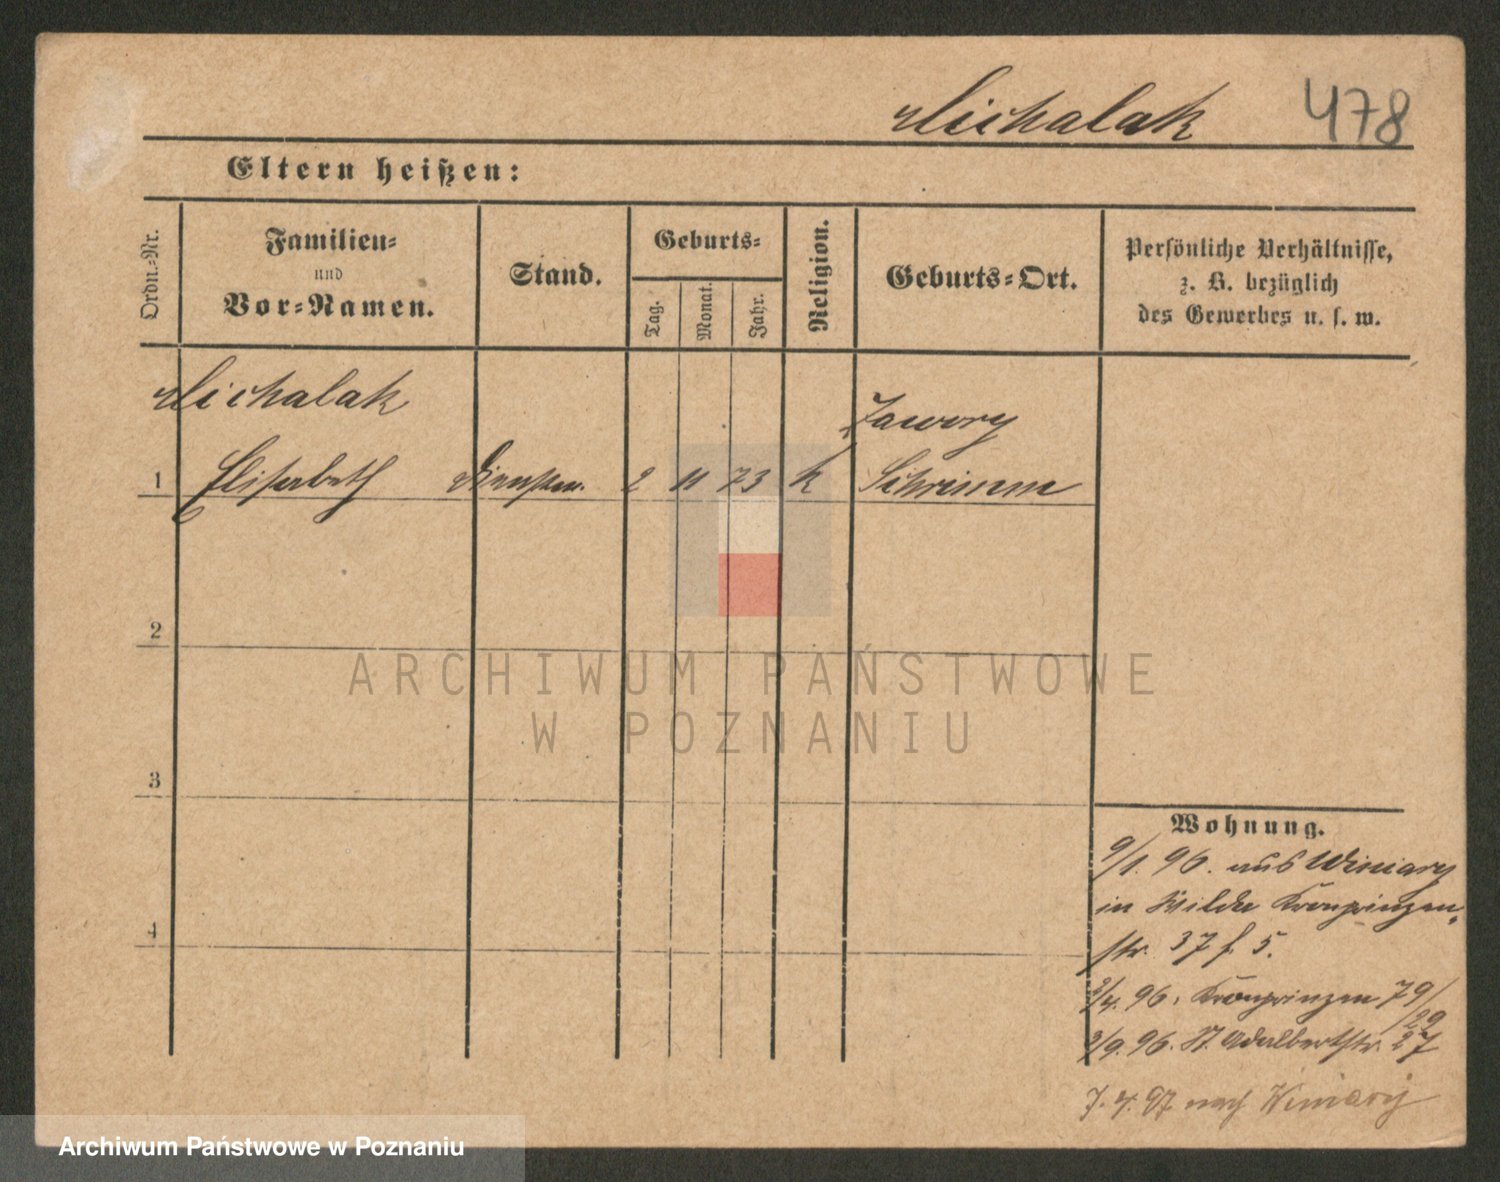 Michalak 478
Eltern heißen:
Ordn.-Nr.
Familien-
und
Vor-Namen.
Stand.
Geburts-
Tag.
Monat.
Jahr.
Religion.
Geburts-Ort.
Persönliche Verhältnisse,
z. B. bezüglich
des Gewerbes u. s. w.
Michalak
Jawory
1 Elisabeth Dienstm. 2 11 73 k Schrimm
2
3
4
Wohnung.
9/1. 96. aus Winiary
in Wilda Kronprinzen-
str. 37 b. 5.
2/4. 96. Kronprinzen 79/
/29
2/9. 96. St. Adalbertstr. 27
7. 4. 97 nach Winiary
ARCHIWUM PAŃSTWOWE
W POZNANIU
Archiwum Państwowe w Poznaniu